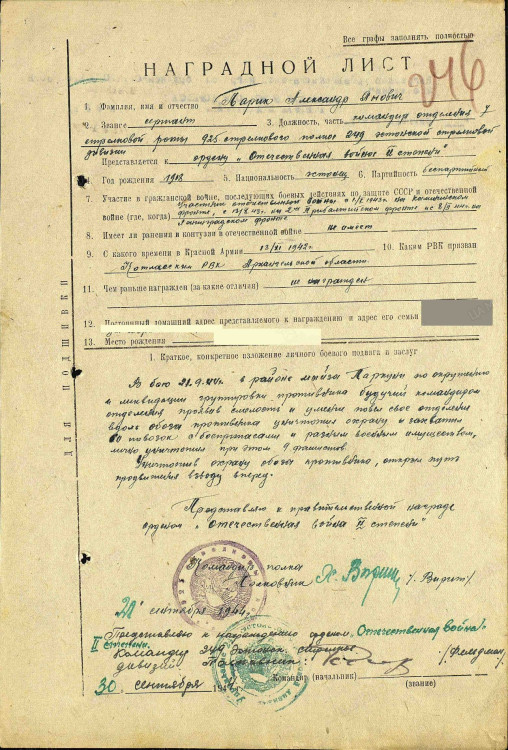 Все графы заполнять полностью
НАГРАДНОЙ ЛИСТ
1. Фамилия, имя и отчество Ларин Александр Янович
2. Звание сержант 3. Должность, часть командир отделения
стрелковой роты 925 стрелкового полка 249 эстонской стрелковой
дивизии
Представляется к ордену „Отечественная война II степени"
4. Год рождения 1918 5. Национальность эстонец 6. Партийность беспартийный
7. Участие в гражданской войне, последующих боевых действиях по защите СССР и отечественной
войне (где, когда) Участник отечественной войны на Калининском
фронте, с на 2ом Прибалтийском фронте
Ленинградском фронте
8. Имеет ли ранения и контузии в отечественной войне не имеет
9. С какого времени в Красной Армии 1942г. 10. Каким РВК призван
Котласским РВК Архангельской области
11. Чем ранее награжден (за какие отличия) не награжден
12. Постоянный домашний адрес представляемого к награждению и адрес его семьи
13. Место рождения
ДЛЯ ПОДШИВКИ
1. Краткое, конкретное изложение личного боевого подвига и заслуг
В бою 21.9.44г. в районе по окружению
и ликвидации группировки противника будучи командиром
отделения проявив смелость и умение повел свое отделение
вдоль обоза противника уничтожил охрану и захватил
80 повозок с боеприпасами и разным военным имуществом,
лично уничтожил при этом 9 фашистов.
Уничтожив охрану обоза противника, открыл путь
продвижения взводу вперед.
Представляю к правительственной награде
орденом „Отечественная война II степени"
Командир полка
Полковник /Вырк/
сентября 1944г.
Представляю к награждению орденом „Отечественная война"
II степени.
Командир 249 дивизии
Полковник /Фельдман/
Командир (начальник)
(звание)
30 сентября 194